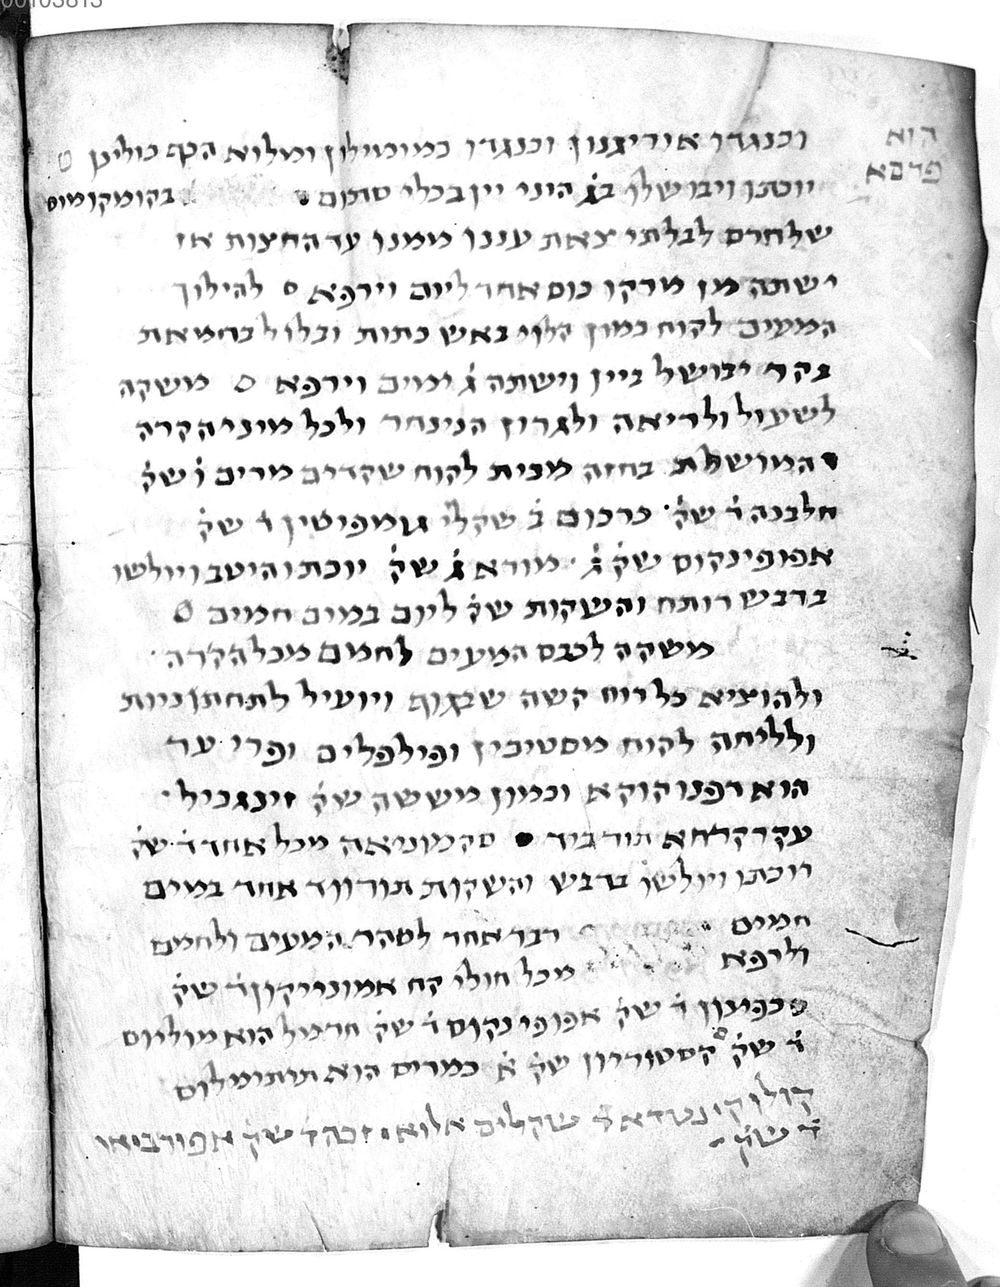 00103813
הוא
פרסא
וכנגדו אוריגנון וכנגדו כמומילון ומלוא הכף כוליבן
יוכתו ויבושלו בג׳ היני יין בכלי סתום בקומקומוס
שלחרס לבלתי צאת עננו ממנו עד החצות אז
ישתה מן מרקו כוס אחד ליום וירפא ס להילוך
המעים לקוח כמון קלוי באש כתות ובלול בחמאת
בקר יבושל ביין וישתה ג׳ ימים וירפא ס משקה
לשעול ולריאה ולגרון הניחר ולכל מיני הקרה
המושלת בחזה מבית לקוח שקדים מרים ו׳ שק׳
חלבנה ד׳ שק׳ כרכום ב׳ שקלי גומפיטין ד׳ שק׳
אפופינקוס שק׳ ג׳ מורא ג׳ שק׳ יוכתו היטב ויולשו
בדבש רותח והשקות שק׳ ליום במים חמים ס
משקה לכבס המעים לחמם מכל הקרה
ולהוציא כל רוח קשה שבגוף ויועיל לתחתוניות
ולליחה לקוח מסטיכין ופילפלים ופרי ער
הוא דפנוקוקא וכמון מששה שק׳ זינגביל
עקרקרחא תורביד סקמוניאה מכל אחד ד׳ שק׳
יוכתו ויולשו בדבש והשקות תורווד אחד במים
חמים דבר אחר לטהר המעים ולחמם
ולרפא מכל חולי קח אמוניקון ד׳ שק׳
סכפינון ד׳ שק׳ אפופינקוס ד׳ שק׳ חרמל הוא מוליום
ד׳ שק׳ קסטוריון שק׳ א׳ כמריס הוא תיתימלוס
קולוקינטדא ד׳ שקלים אלוא זכה ד׳ שק׳ אפורביאו
ד׳ שק׳